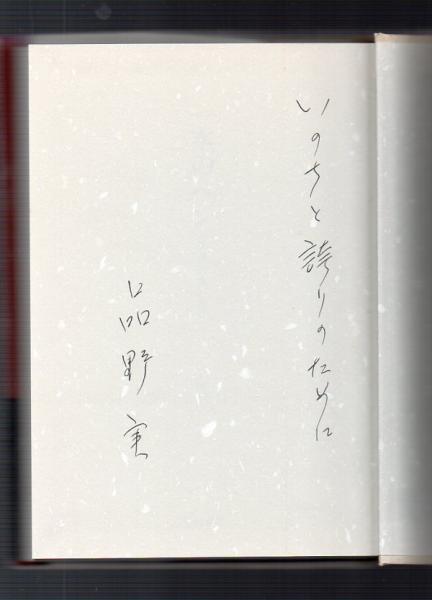 いのちと誇りのために
品野実